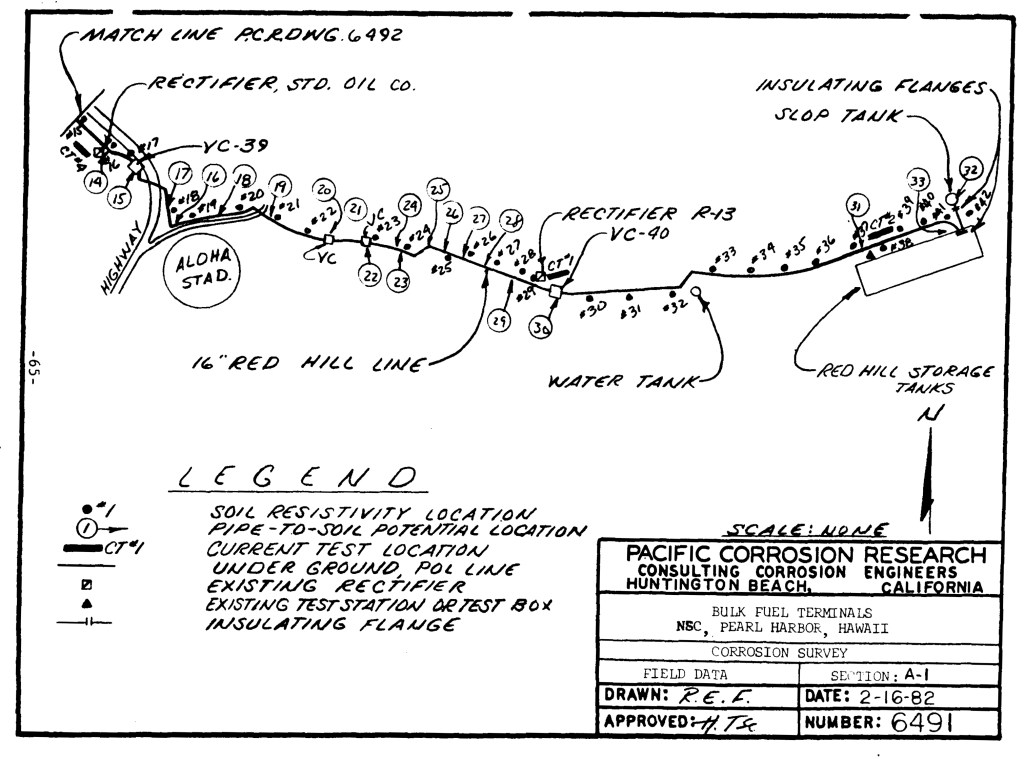 MATCH LINE P.C.R.DWG. 6492
RECTIFIER, STD. OIL CO.
INSULATING FLANGES
SLOP TANK
#15
CT#4
#16
#17
VC-39
14
15
17
#18
16
#19
18
#20
19
#21
20
#22
VC
21
JC
#23
22
24
#24
23
25
#25
26
#26
27
#27
28
#28
#29
29
CT#1
30
RECTIFIER R-13
VC-40
#30
#31
#32
#33
#34
#35
#36
#37
31
CT#2
#38
#39
33
#40
#41
32
#42
HIGHWAY
ALOHA
STAD.
16" RED HILL LINE
WATER TANK
RED HILL STORAGE
TANKS
N
-65-
LEGEND
#1 SOIL RESISTIVITY LOCATION
1 PIPE-TO-SOIL POTENTIAL LOCATION
CT#1 CURRENT TEST LOCATION
UNDER GROUND, POL LINE
EXISTING RECTIFIER
EXISTING TEST STATION OR TEST BOX
INSULATING FLANGE
SCALE: NONE
PACIFIC CORROSION RESEARCH
CONSULTING CORROSION ENGINEERS
HUNTINGTON BEACH, CALIFORNIA
BULK FUEL TERMINALS
NSC, PEARL HARBOR, HAWAII
CORROSION SURVEY
FIELD DATA
SECTION: A-1
DRAWN: R.E.F.
DATE: 2-16-82
APPROVED:
NUMBER: 6491